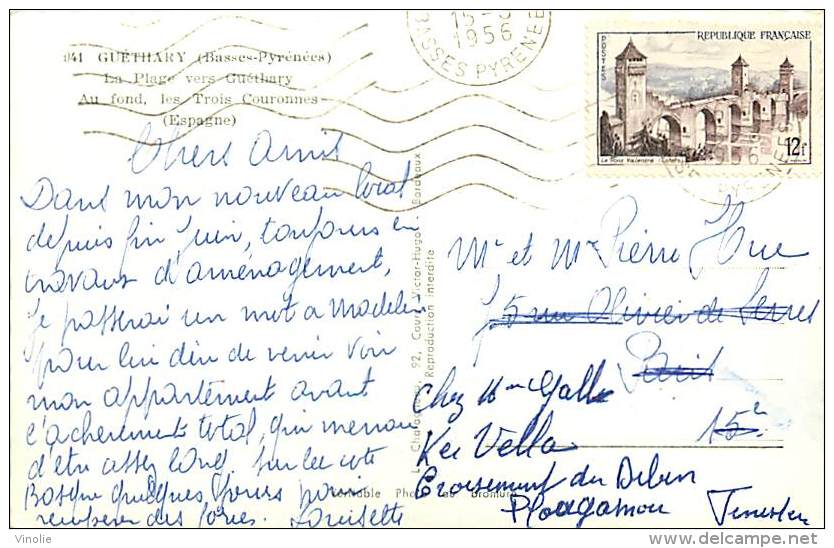 941 GUÉTHARY (Basses-Pyrénées)
La Plage vers Guéthary
Au fond, les Trois Couronnes
(Espagne)
15-
1956
BASSES PYRENEES
RÉPUBLIQUE FRANÇAISE
POSTES
12f
Le Pont Valentré (Cahors)
Chers Amis
Dans mon nouveau local
depuis fin juin, toujours en
travaux d'aménagement,
je passerai un mot a Madeleine
pour lui dire de venir voir
mon appartement avant
l'achèvement total, qui menace
d'être assez long. Sur la côte
Basque quelques jours pour
remposer des forces. Louisette
92, Cours Victor-Hugo - Bordeaux
Reproduction interdite
Véritable Photo au Bromure
Mr et Me Pierre Hue
75 rue Olivier de Serres
Paris
15e
Chez Mme Galle
Ker Vella
Croisement du Diben
Plougasnou Finistère
www.delcampe.net
Vinolie